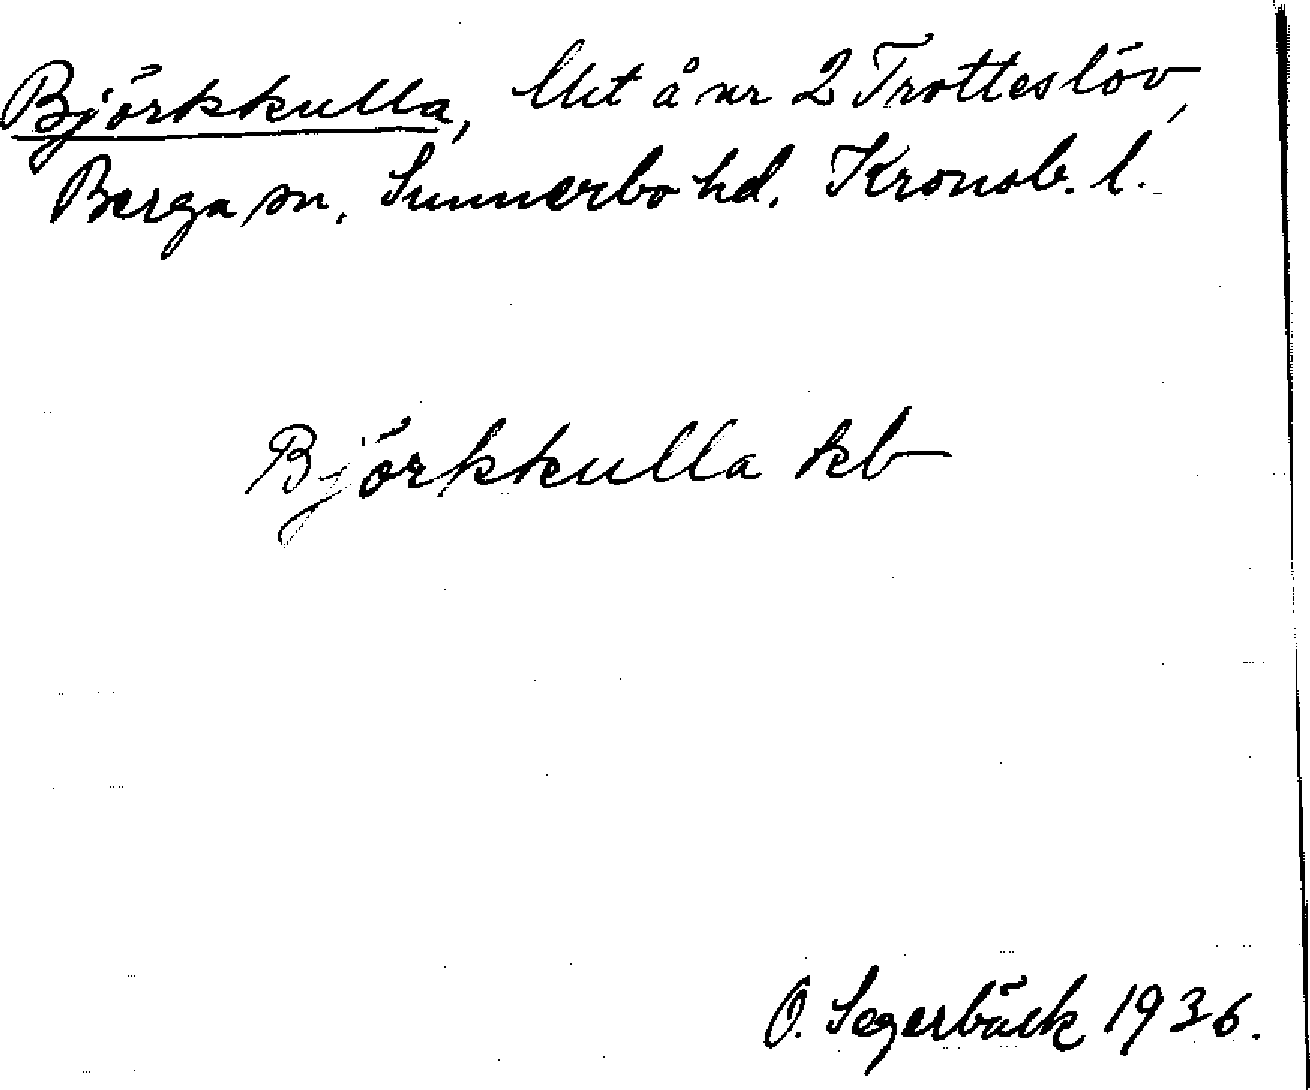 Björkkulla, lht å nr 2 Trotteslöv,
Berga sn. Sunnerbo hd. Kronob. l.
Björkkulla kb
O. Segerbäck 1936.